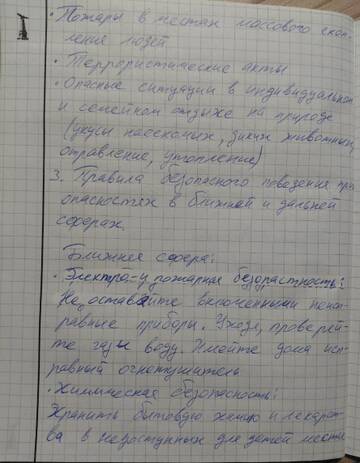 · Пожары в местах массового скоп-
ления людей
· Террористические акты
· Опасные ситуации в индивидуальном
и семейном отдыхе на природе
(укусы насекомых, диких животных,
отравление, утопление)
3. Правила безопасного поведения при
опасностях в ближней и дальней
сферах.
Ближняя сфера:
· Электро- и пожарная безопастность:
Не оставляйте включенными неис-
правные приборы. Уходя, проверяй-
те газ и воду. Имейте дома исп-
равный огнетушитель
· Химическая безопасность:
Хранить бытовую химию и лекарст-
ва в недоступных для детей местах